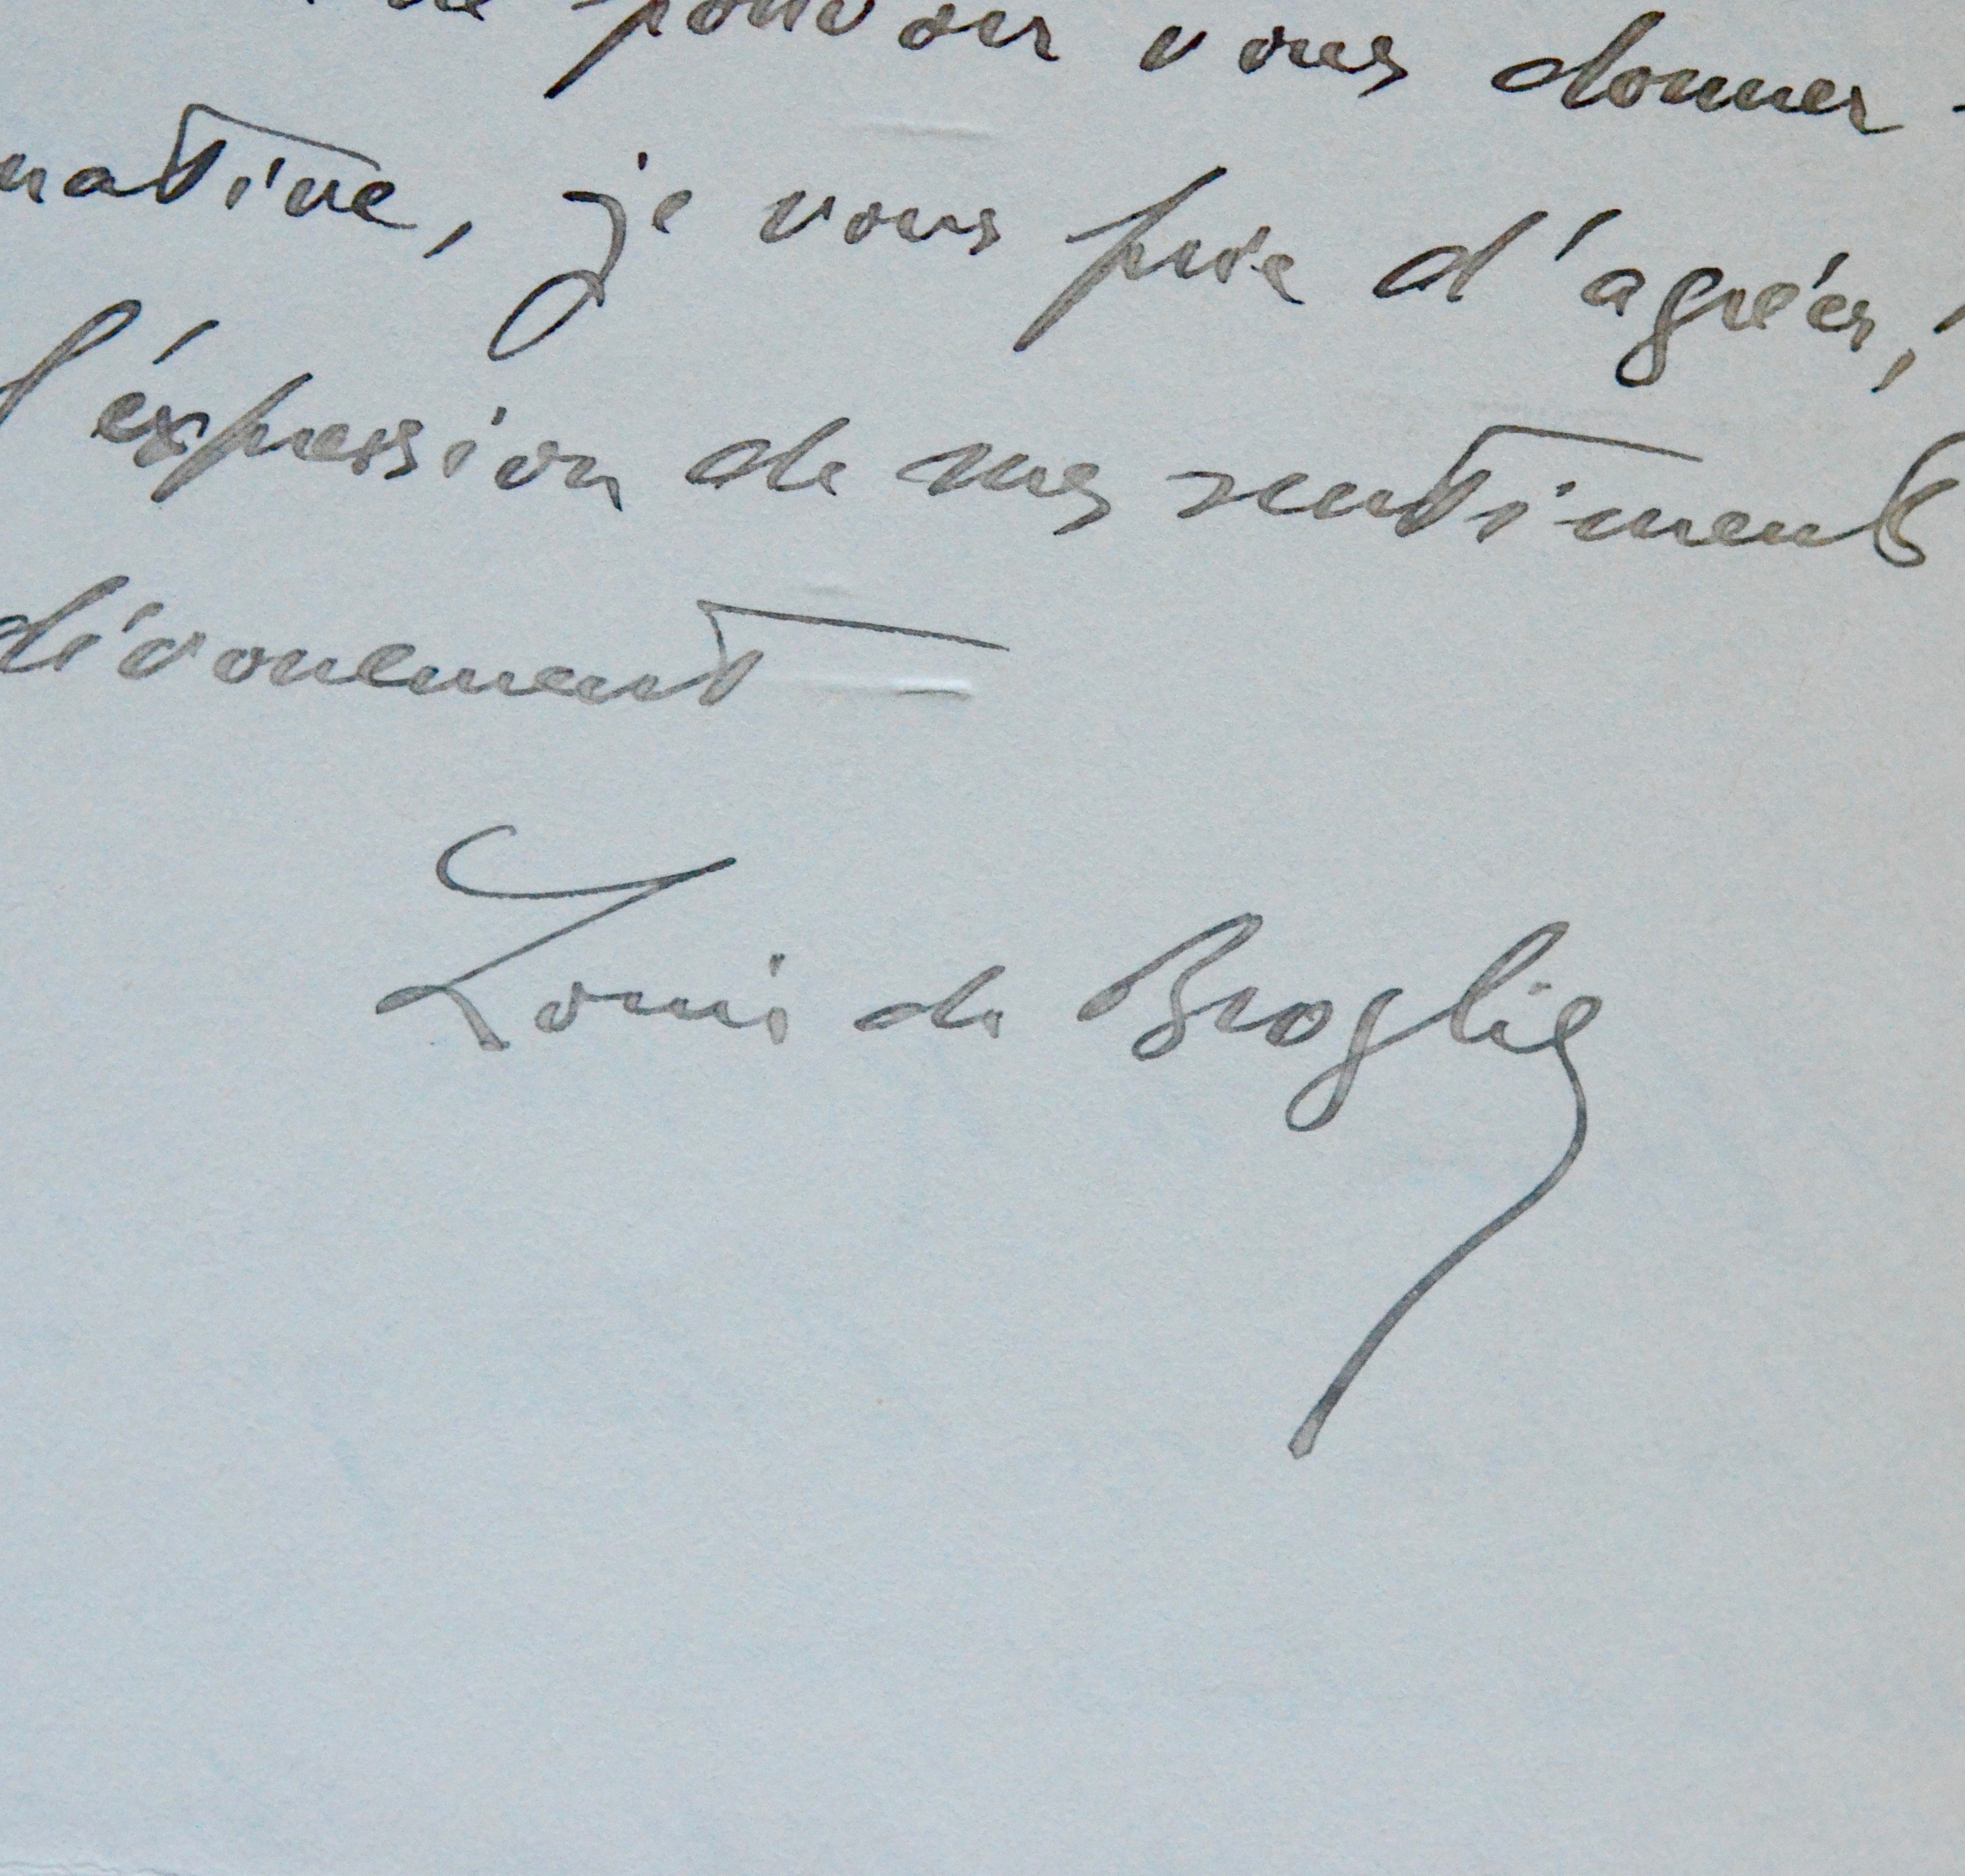 pouvoir vous donner
native, je vous prie d'agréer,
l'éxpression de mes sentiments
dévouement
Louis de Broglie